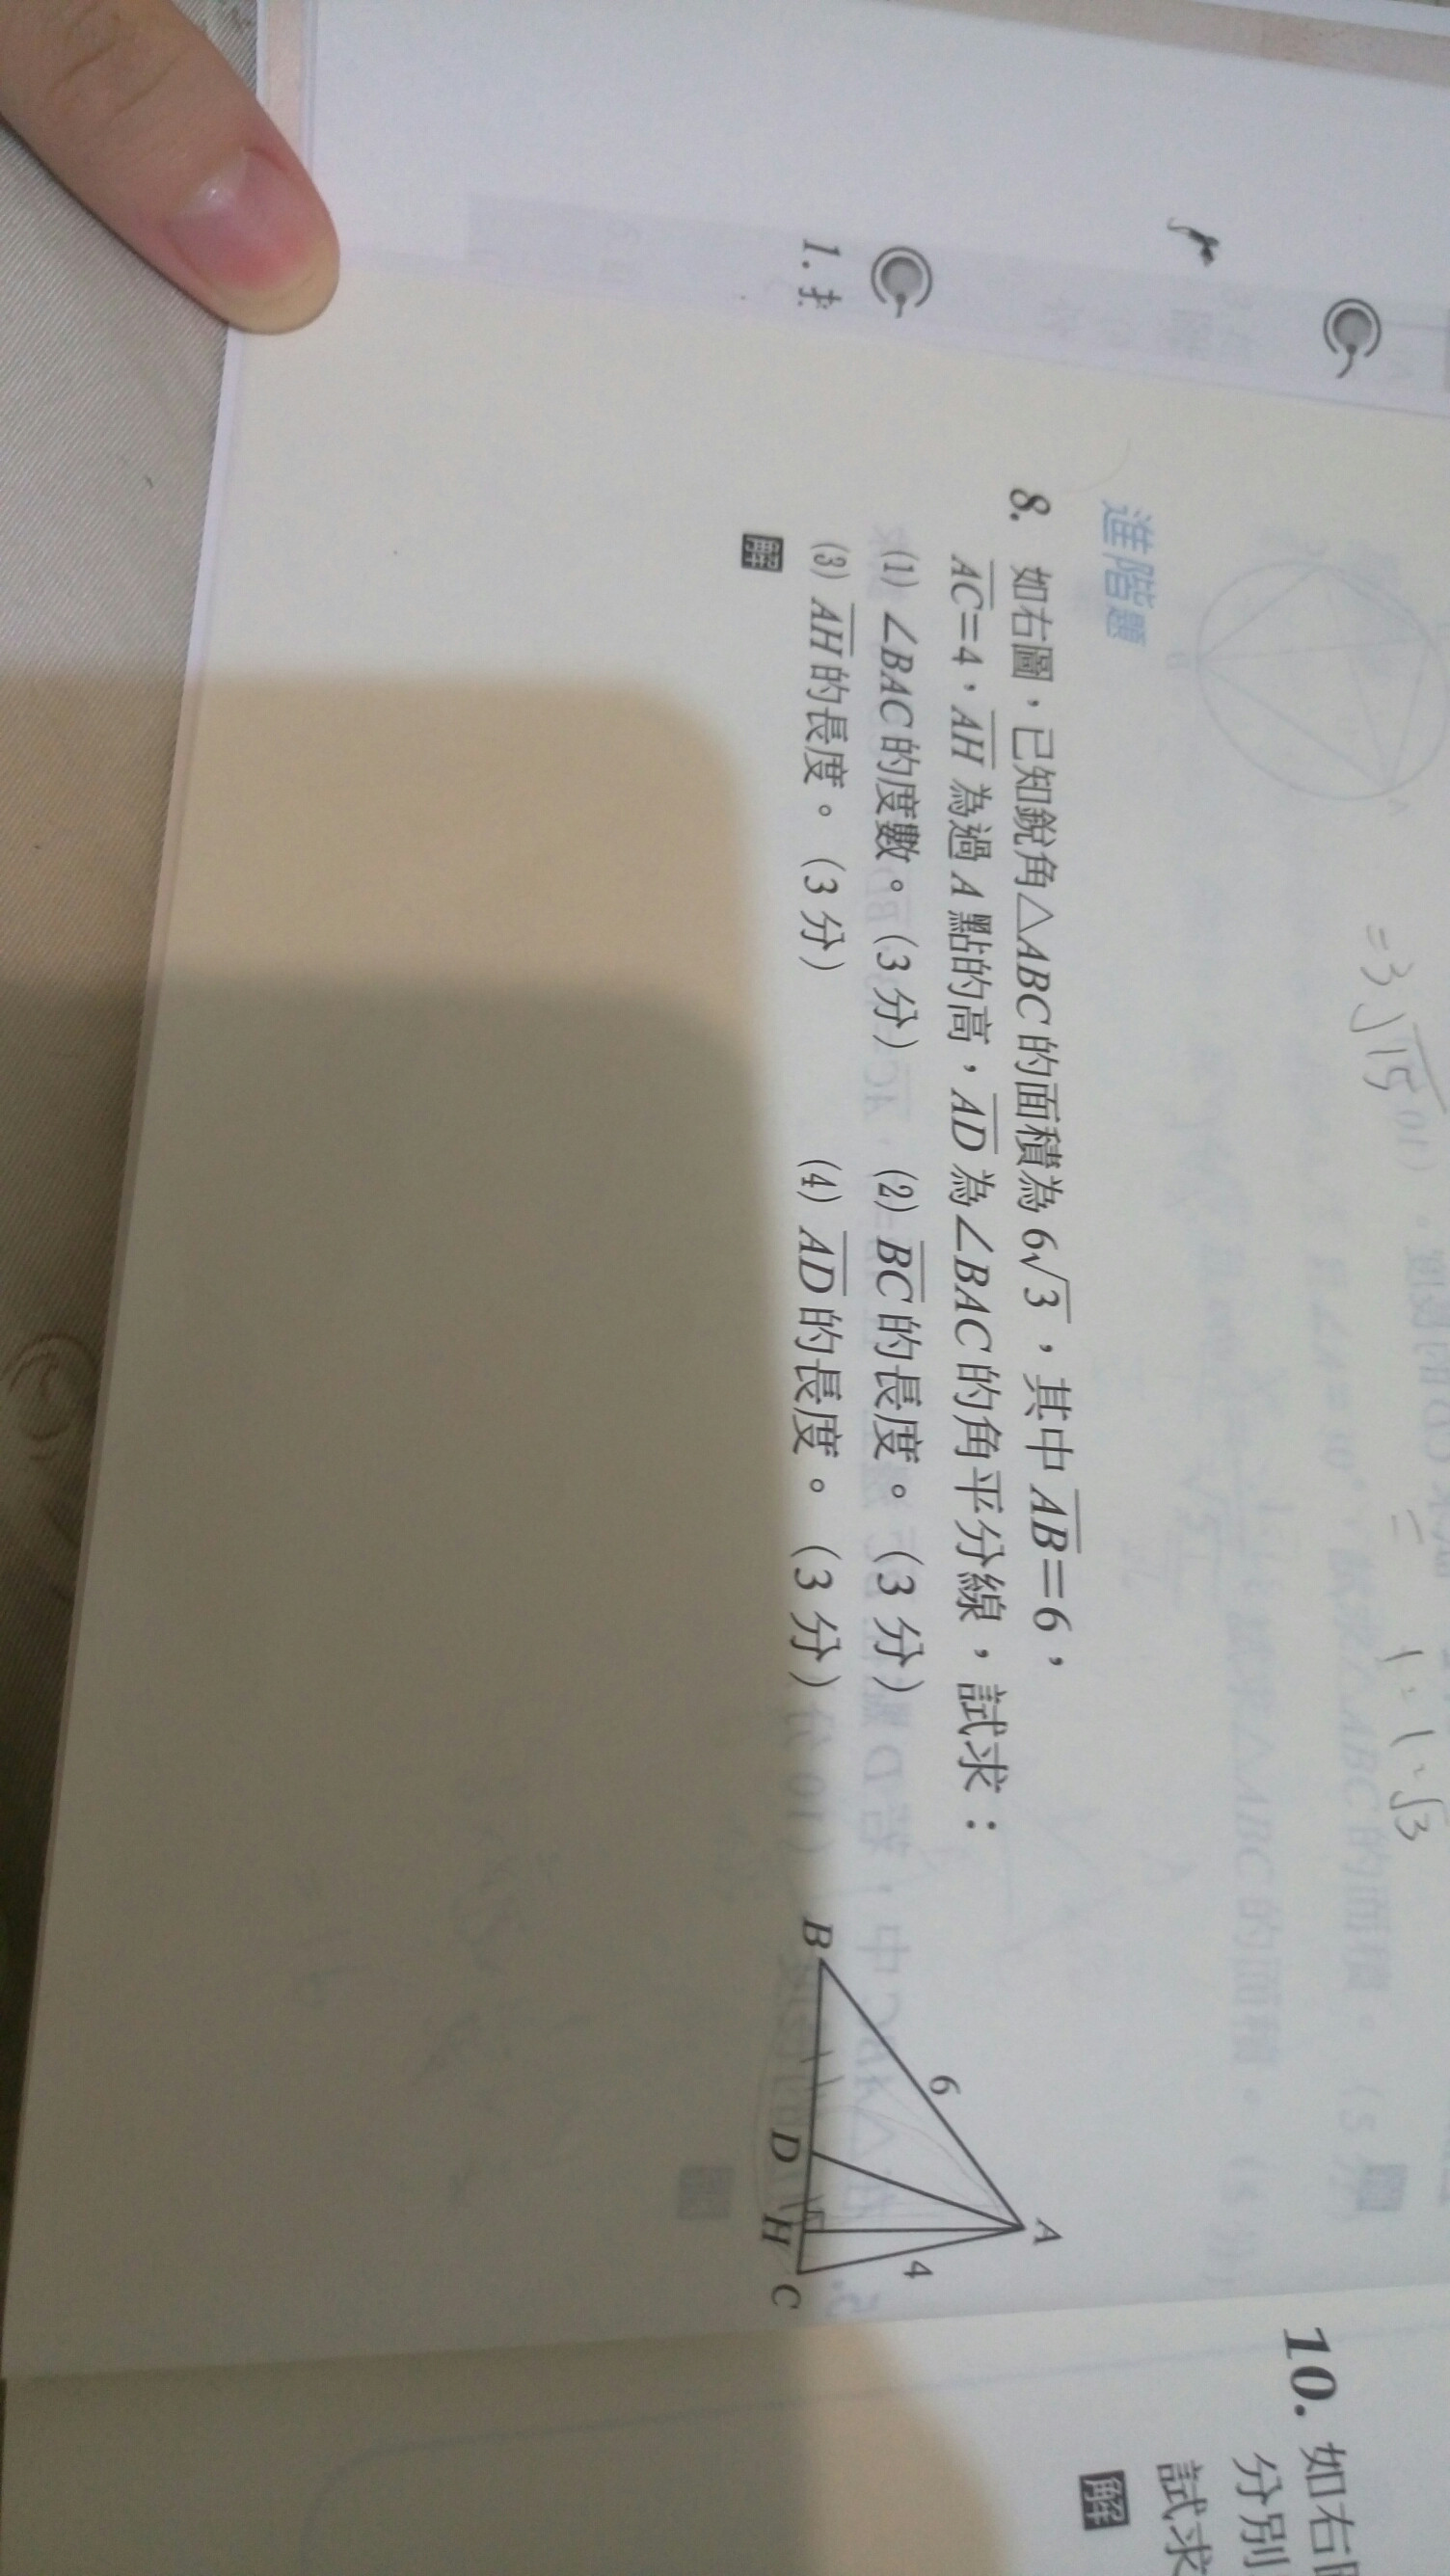 =3√15
進階題
8. 如右圖，已知銳角△ABC的面積為6√3，其中AB=6，
AC=4，AH為過A點的高，AD為∠BAC的角平分線，試求：
(1) ∠BAC的度數。(3分) (2) BC的長度。(3分)
(3) AH的長度。(3分) (4) AD的長度。(3分)
解
A
6
4
B
D
H
C
1.
10. 如右
分別
試求
解